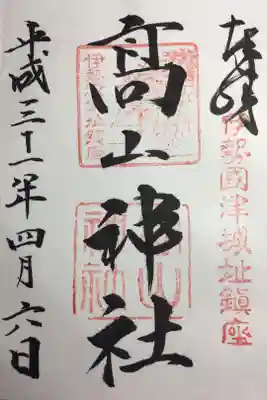 奉拝
伊勢國津城址鎮座
高山神社
平成三十一年四月六日